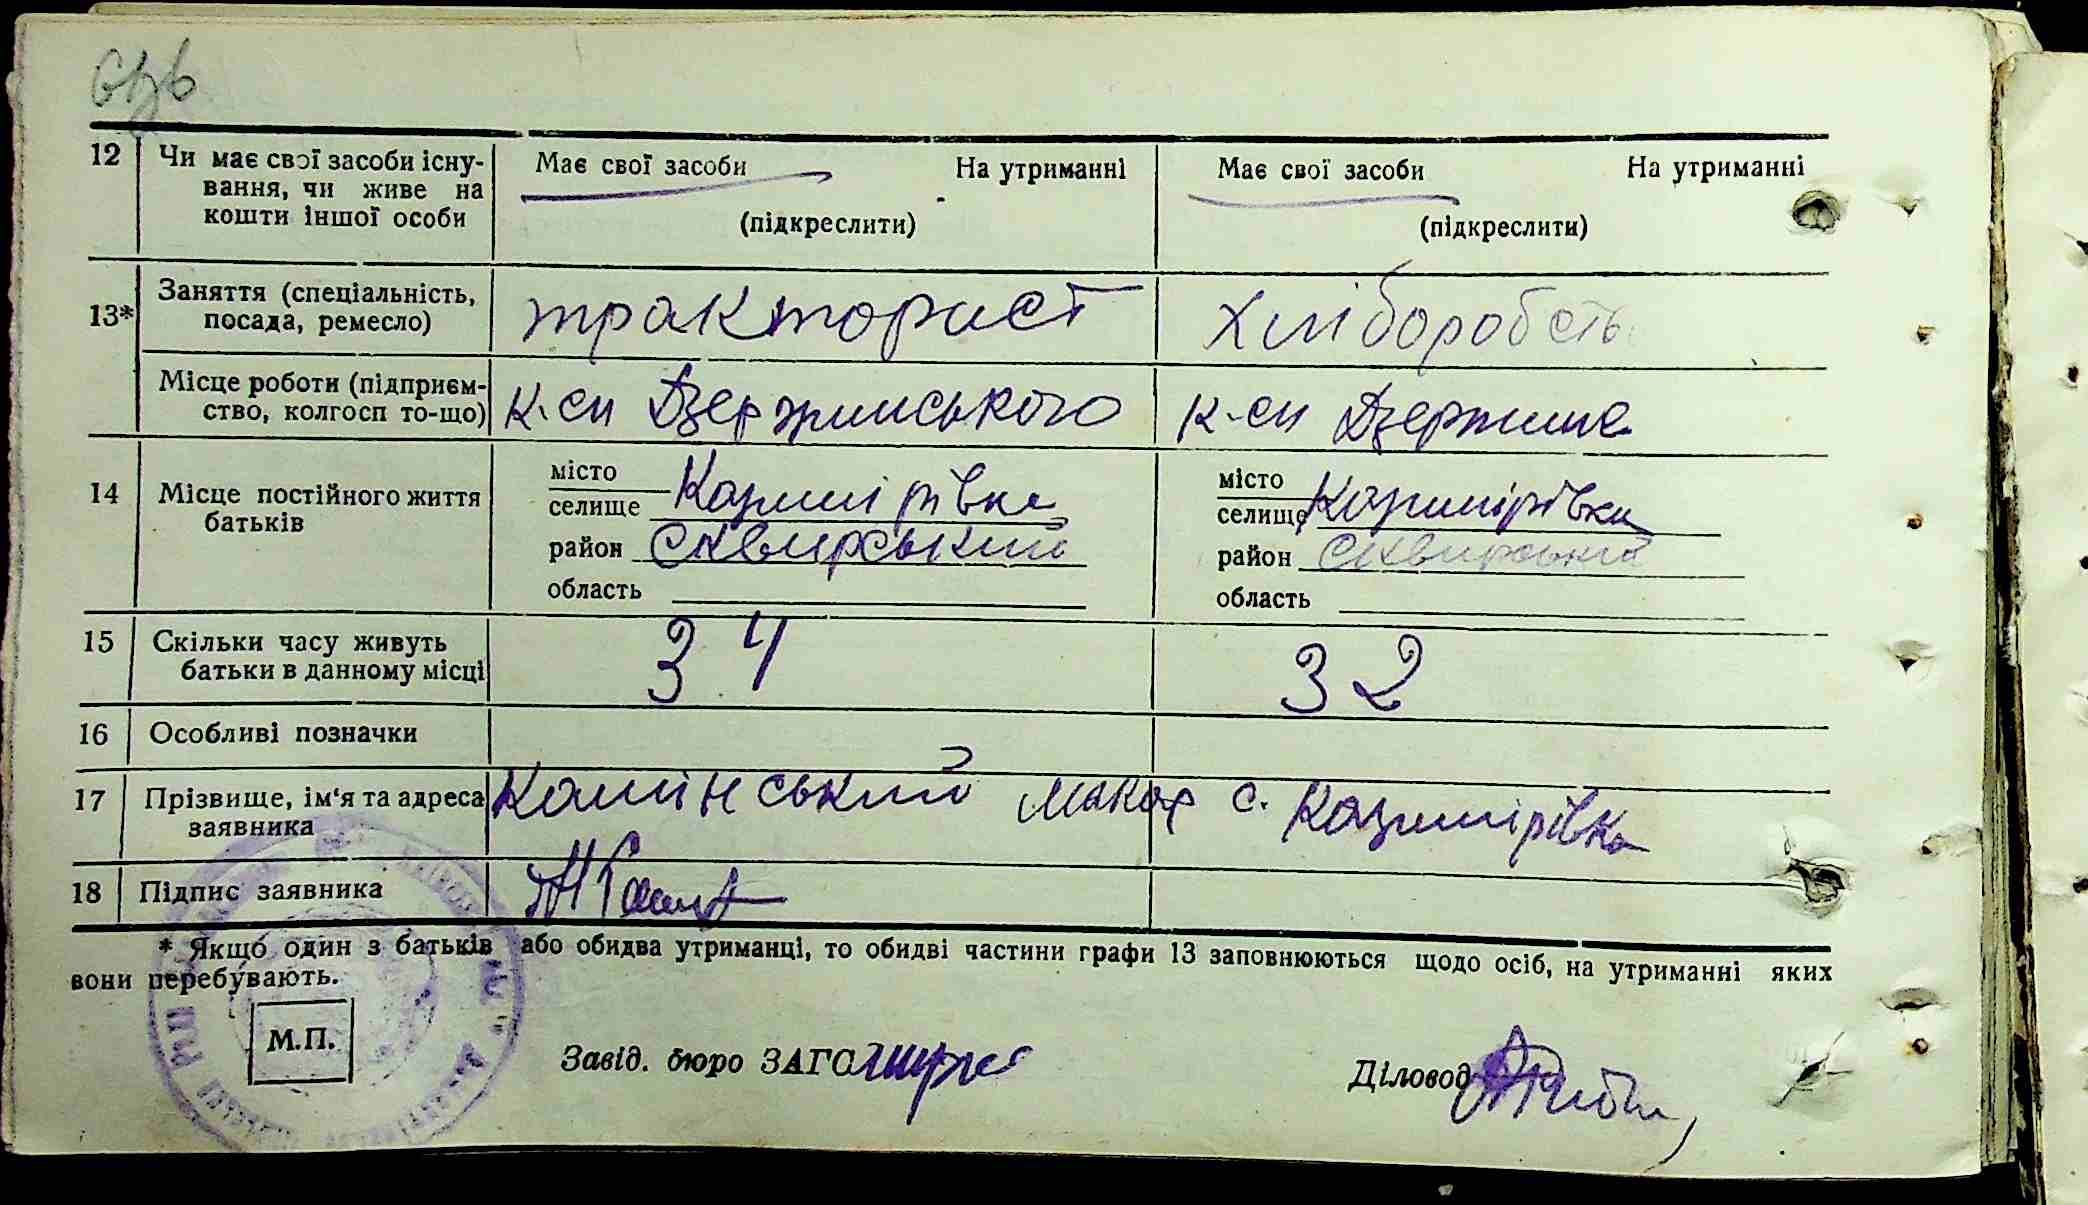 12 Чи має свої засоби існу- Має свої засоби На утриманні Має свої засоби На утриманні
вання, чи живе на
кошти іншої особи (підкреслити) (підкреслити)
13* Заняття (спеціальність, тракторист хліборобств
посада, ремесло)
Місце роботи (підприєм- к-сп Дзержинського к-сп Дзержинс
ство, колгосп то-що)
14 Місце постійного життя місто місто
батьків селище Казимірівка селище Казимірівка
район Сквирський район Сквирський
область область
15 Скільки часу живуть 34 32
батьки в данному місці
16 Особливі позначки
17 Прізвище, ім'я та адреса Камінський Макар с. Казимірівка
заявника
18 Підпис заявника
* Якщо один з батьків або обидва утриманці, то обидві частини графи 13 заповнюються щодо осіб, на утриманні яких
вони перебувають.
М.П. Завід. бюро ЗАГС Діловод